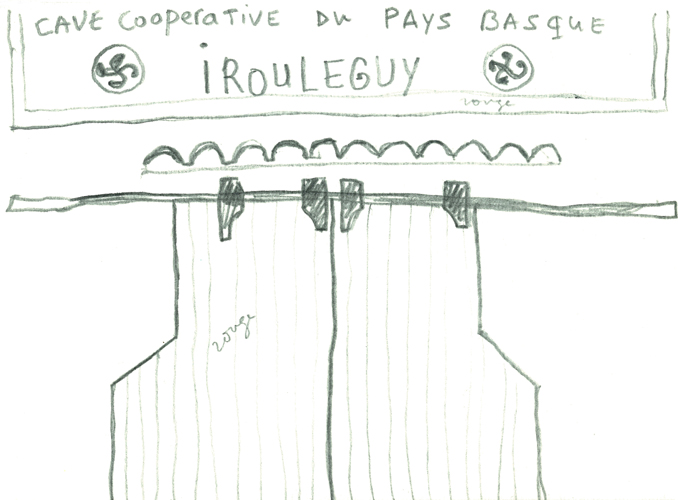 CAVE COOPERATIVE DU PAYS BASQUE
iROULEGUY
rouge
rouge